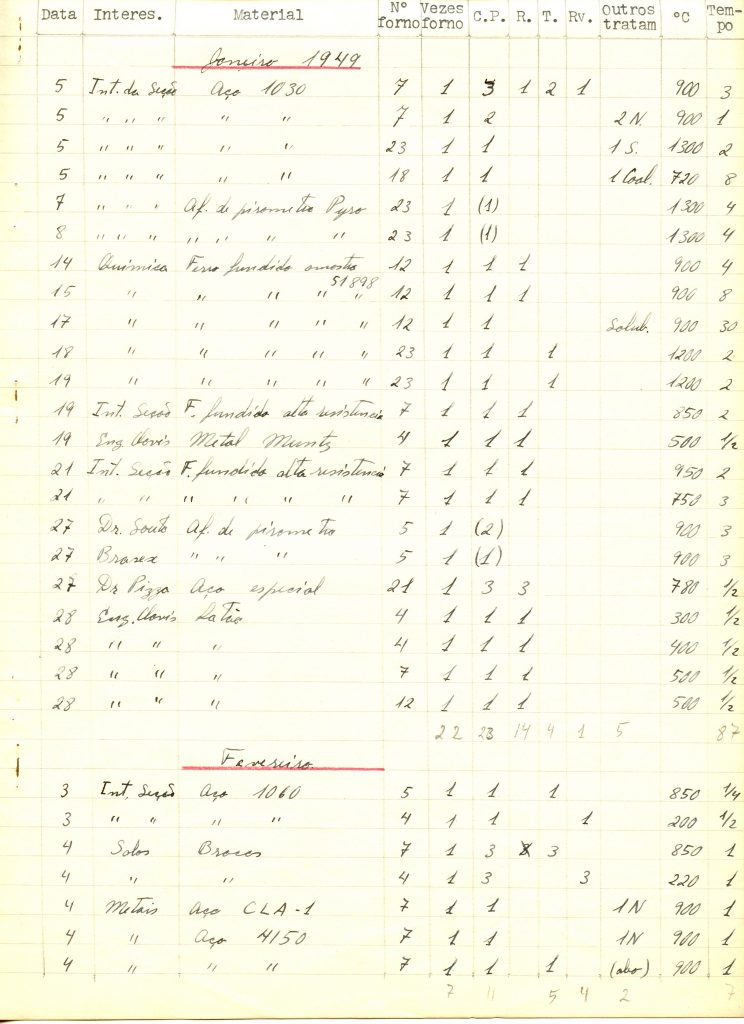 Data Interes. Material Nº forno Vezes forno C.P. R. T. Rv. Outros tratam °C Tem-po
Janeiro 1949
5 Int. da Seção Aço 1030 7 1 3 1 2 1 900 3
5 " " " " " 7 1 2 2 N. 900 1
5 " " " " " 23 1 1 1 S. 1300 2
5 " " " " " 18 1 1 1 Coal. 720 8
7 " " " Af. de pirometro Pyro 23 1 (1) 1300 4
8 " " " " " " " " 23 1 (1) 1300 4
14 Química Ferro fundido amostra 12 1 1 1 900 4
51898
15 " " " " " 12 1 1 1 900 8
17 " " " " " 12 1 1 Solub. 900 30
18 " " " " " 23 1 1 1 1200 2
19 " " " " " 23 1 1 1 1200 2
19 Int. Seção F. fundido alta resistencia 7 1 1 1 850 2
19 Eng Clovis Metal Muntz 4 1 1 1 500 1/2
21 Int. Seção F. fundido alta resistencia 7 1 1 1 950 2
21 " " " " " " 7 1 1 1 750 3
27 Dr. Souto Af. de pirometro 5 1 (2) 900 3
27 Brasex " " " 5 1 (1) 900 3
27 Dr Pizza Aço especial 21 1 3 3 780 1/2
28 Eng. Clovis Latão 4 1 1 1 300 1/2
28 " " " 4 1 1 1 400 1/2
28 " " " 7 1 1 1 500 1/2
28 " " " 12 1 1 1 500 1/2
22 23 14 4 1 5 87
Fevereiro
3 Int. Seção Aço 1060 5 1 1 1 850 1/4
3 " " " " 4 1 1 1 200 1/2
4 Solos Brocas 7 1 3 3 850 1
4 " " 4 1 3 3 220 1
4 Metais Aço CLA-1 7 1 1 1N 900 1
4 " Aço 4150 7 1 1 1N 900 1
4 " " " 7 1 1 1 (abo) 900 1
7 11 5 4 2 7